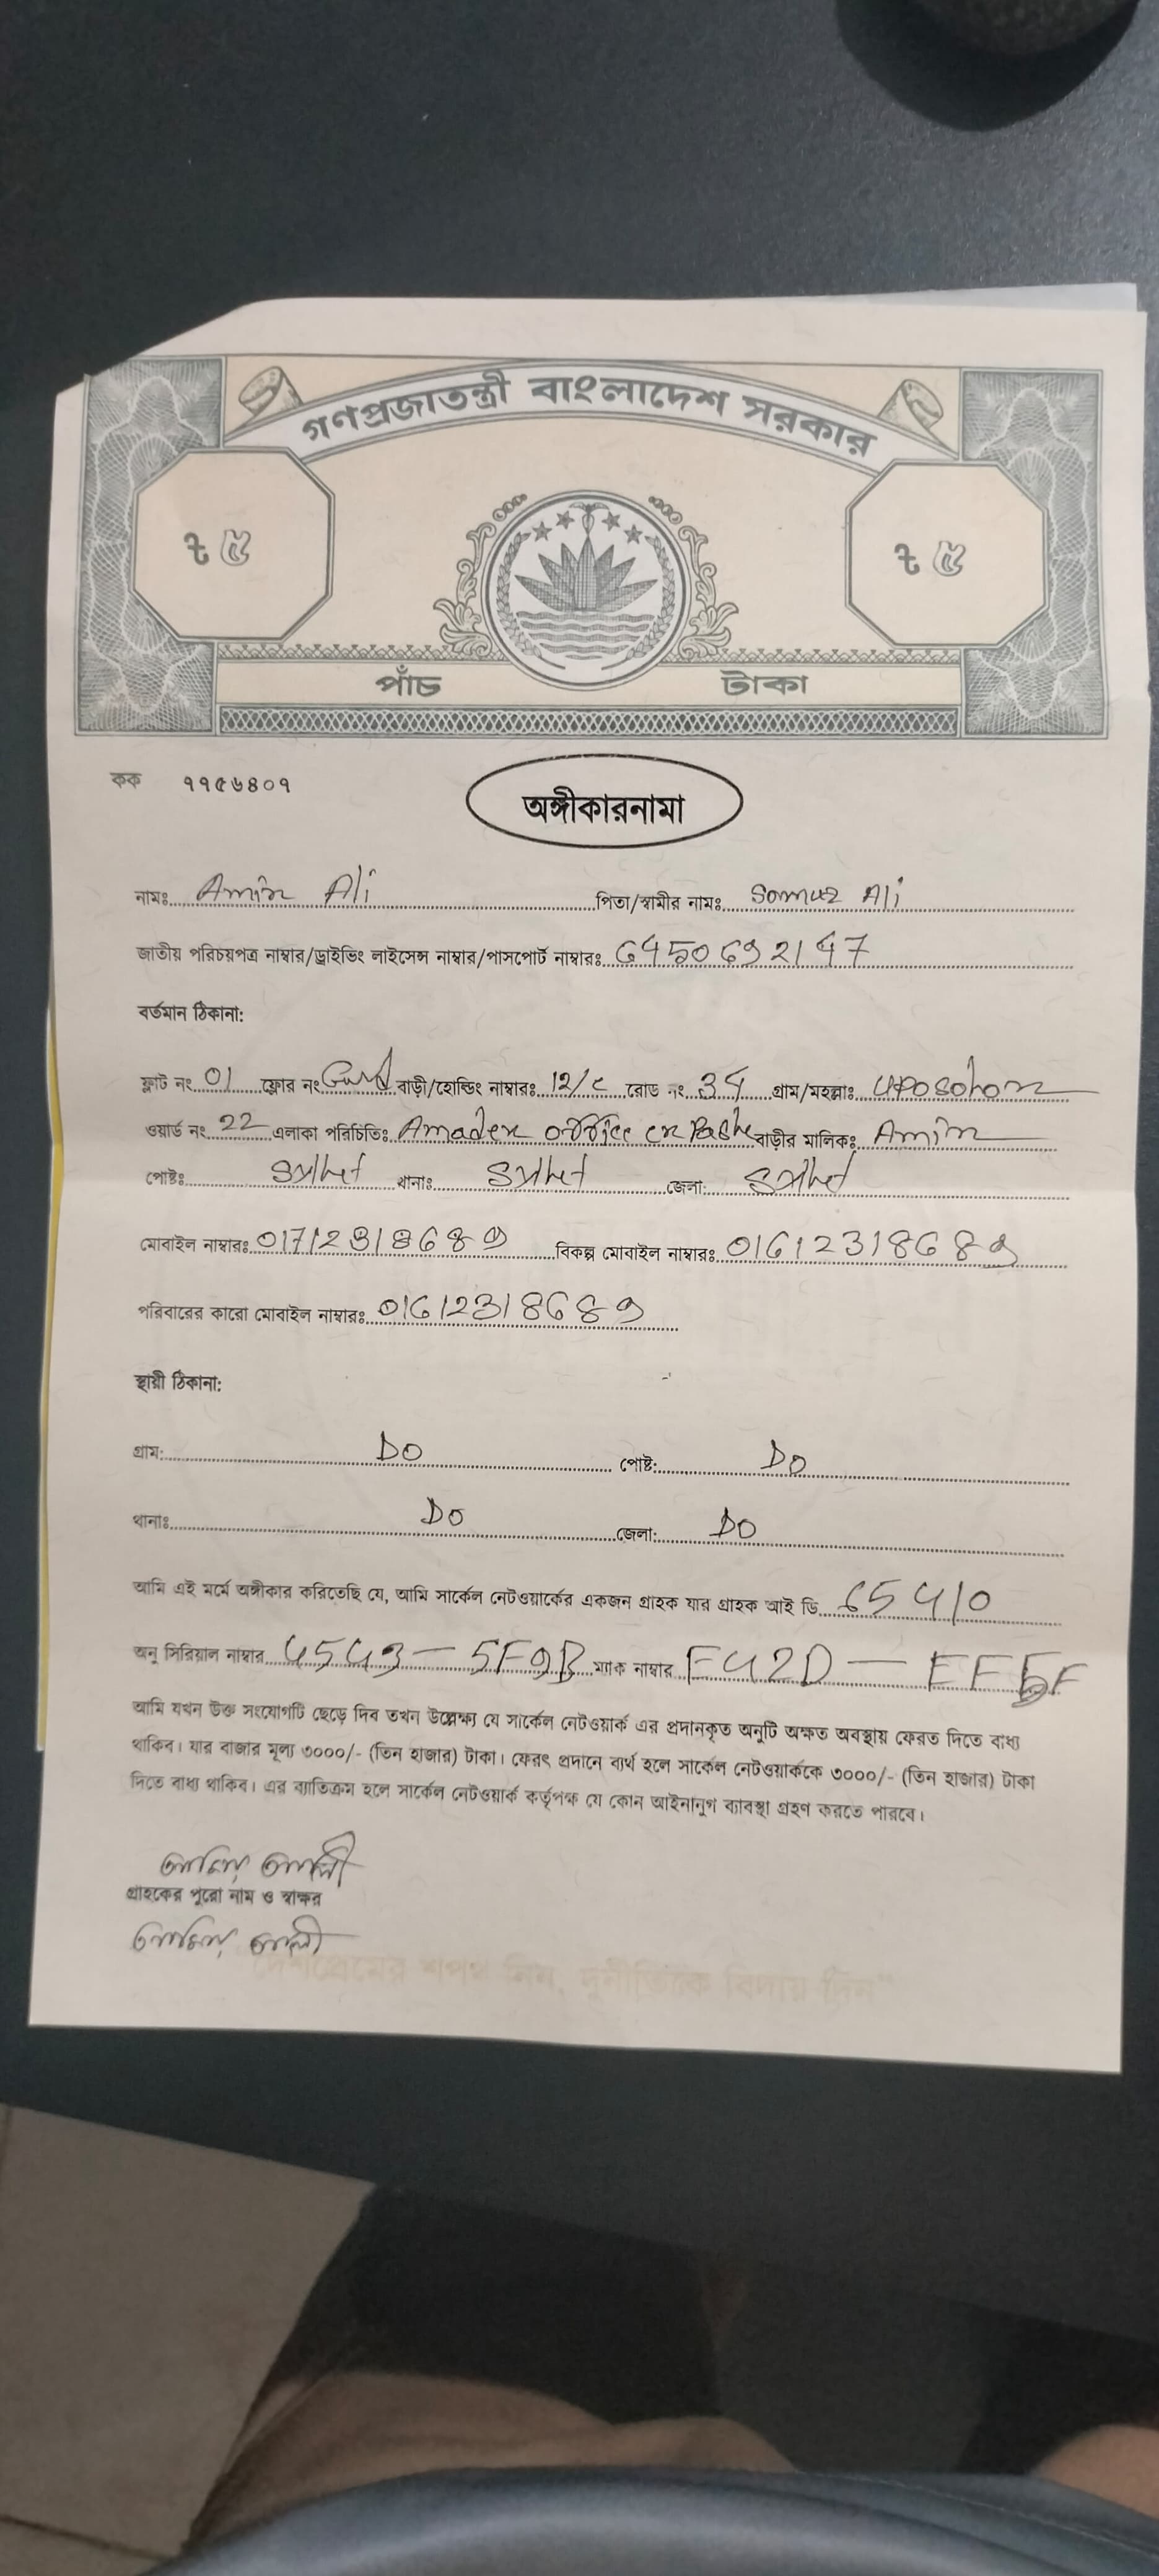 গণপ্রজাতন্ত্রী বাংলাদেশ সরকার
৳ ৫ ৳ ৫
পাঁচ টাকা
কক ৭৭৫৬৪০৭
অঙ্গীকারনামা
নামঃ Amin Ali পিতা/স্বামীর নামঃ Somuz Ali
জাতীয় পরিচয়পত্র নাম্বার/ড্রাইভিং লাইসেন্স নাম্বার/পাসপোর্ট নাম্বারঃ 6450692147
বর্তমান ঠিকানা:
ফ্লাট নং 01 ফ্লোর নং বাড়ী/হোল্ডিং নাম্বারঃ 12/c রোড নং 34 গ্রাম/মহল্লাঃ uposohor
ওয়ার্ড নং 22 এলাকা পরিচিতিঃ Amader office er Pashe বাড়ীর মালিকঃ Amin
পোষ্টঃ Sylhet থানাঃ Sylhet জেলা: Sylhet
মোবাইল নাম্বারঃ 01712318689 বিকল্প মোবাইল নাম্বারঃ 01612318689
পরিবারের কারো মোবাইল নাম্বারঃ 01612318689
স্থায়ী ঠিকানা:
গ্রাম: DO পোষ্ট: DO
থানাঃ DO জেলা: DO
আমি এই মর্মে অঙ্গীকার করিতেছি যে, আমি সার্কেল নেটওয়ার্কের একজন গ্রাহক যার গ্রাহক আই ডি 65410
অনু সিরিয়াল নাম্বার 4543-5F9B ম্যাক নাম্বার F42D-
আমি যখন উক্ত সংযোগটি ছেড়ে দিব তখন উল্লেক্ষ্য যে সার্কেল নেটওয়ার্ক এর প্রদানকৃত অনুটি অক্ষত অবস্থায় ফেরত দিতে বাধ্য
থাকিব। যার বাজার মূল্য ৩০০০/- (তিন হাজার) টাকা। ফেরৎ প্রদানে ব্যর্থ হলে সার্কেল নেটওয়ার্ককে ৩০০০/- (তিন হাজার) টাকা
দিতে বাধ্য থাকিব। এর ব্যাতিক্রম হলে সার্কেল নেটওয়ার্ক কর্তৃপক্ষ যে কোন আইনানুগ ব্যাবস্থা গ্রহণ করতে পারবে।
আমিন আলী
গ্রাহকের পুরো নাম ও স্বাক্ষর
আমিন আলী
"দেশপ্রেমের শপথ নিন, দুর্নীতিকে বিদায় দিন"